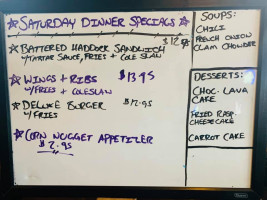 ☆ SATURDAY DINNER SPECIALS ☆
☆ BATTERED HADDOCK SANDWICH $12.95
W/TARTAR SAUCE, FRIES + COLE SLAW
☆ WINGS + RIBS $13.95
W/FRIES + COLESLAW
☆ DELUXE BURGER $12.95
W/FRIES
☆ CORN NUGGET APPETIZER
$7.95
SOUPS:
CHILI
FRENCH ONION
CLAM CHOWDER
DESSERTS:
CHOC. LAVA
CAKE
FRIED RASP.
CHEESECAKE
CARROT CAKE